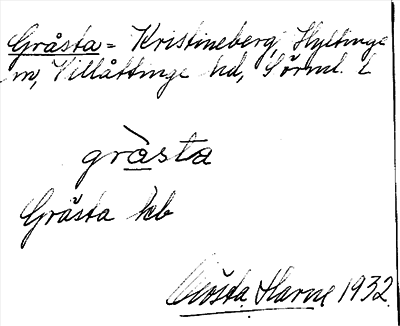 Gråsta = Kristineberg, Hyltinge
sn, Villåttinge hd, Sörml. l
gràsta
Gråsta hb
Gösta Harne 1932.